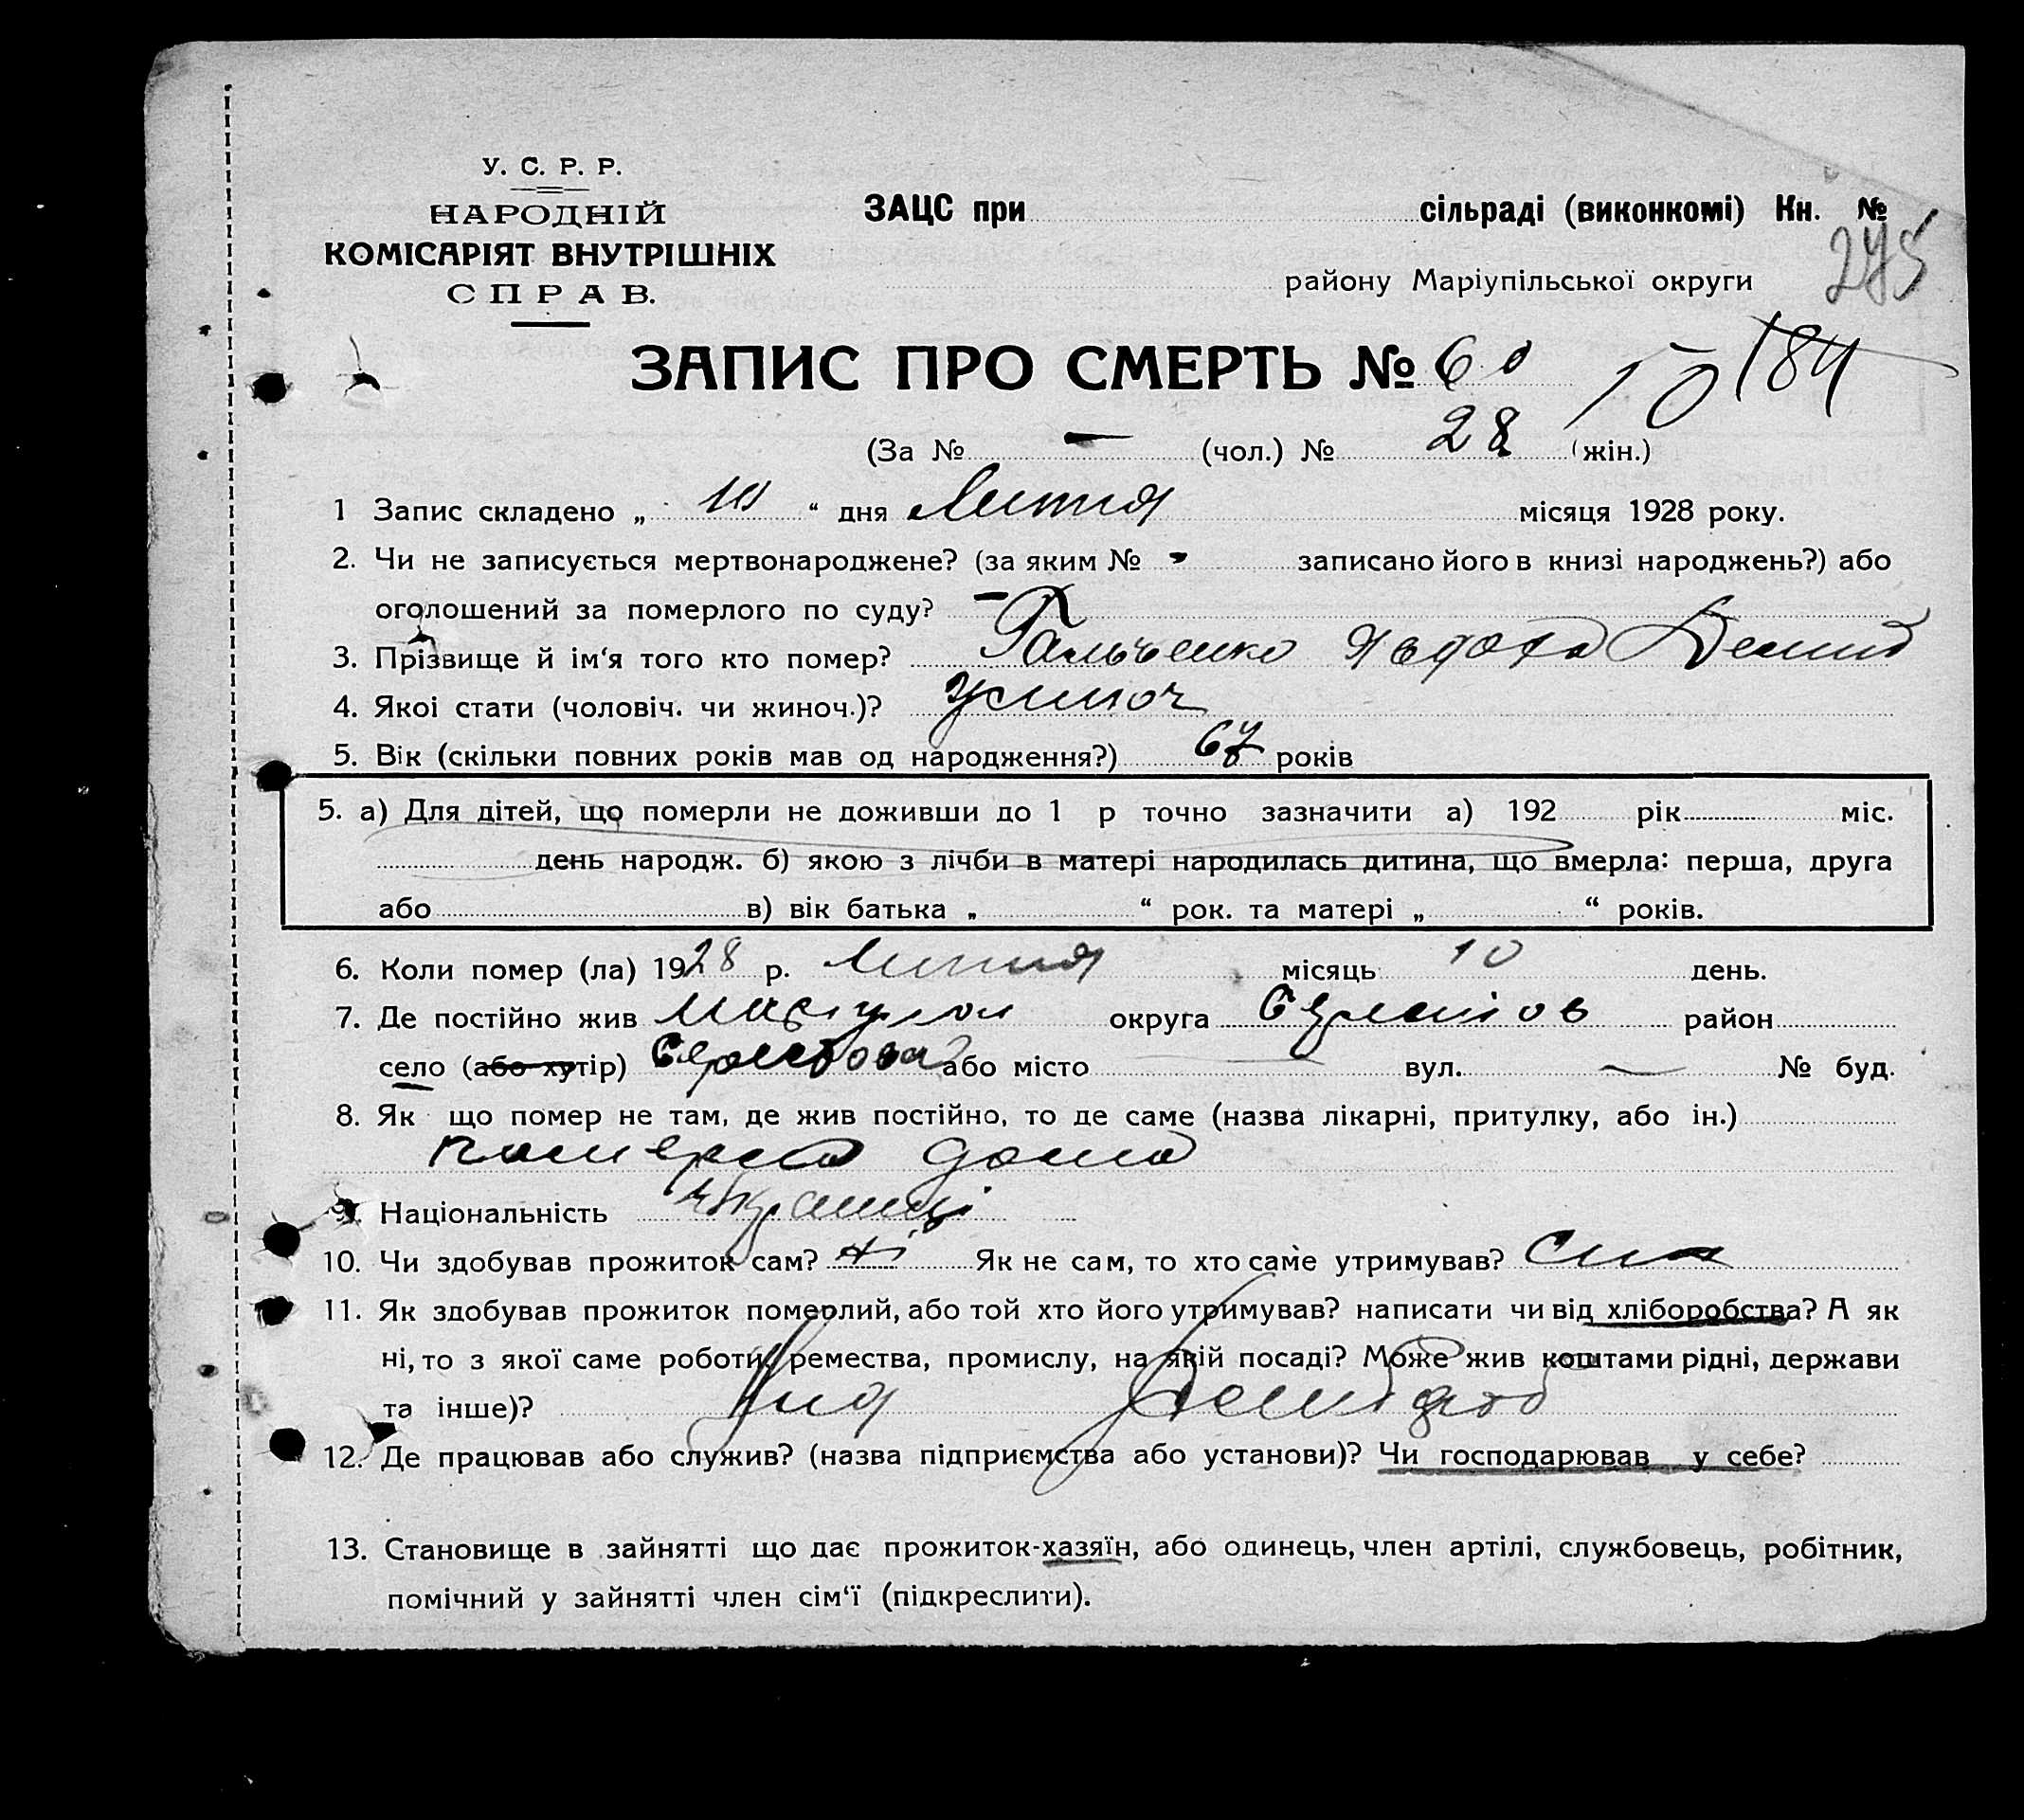 У. С. Р. Р.
НАРОДНІЙ
КОМІСАРІЯТ ВНУТРІШНІХ
СПРАВ.
ЗАЦС при сільраді (виконкомі) Кн. №
275
району Маріупільської округи
ЗАПИС ПРО СМЕРТЬ № 60
10 184
(За № — (чол.) № 28 (жін.)
1 Запис складено „ 10 “ дня Липня місяця 1928 року.
2. Чи не записується мертвонароджене? (за яким № - записано його в книзі народжень?) або
оголошений за померлого по суду? —
3. Прізвище й ім'я того кто помер? Гальченко Явдоха Демид
4. Якоі стати (чоловіч. чи жиноч.)? жиноч
5. Вік (скільки повних років мав од народження?) 67 років
5. а) Для дітей, що померли не доживши до 1 р точно зазначити а) 192 рік міс.
день народж. б) якою з лічби в матері народилась дитина, що вмерла: перша, друга
або в) вік батька „ “ рок. та матері „ “ років.
6. Коли помер (ла) 1928 р. Липня місяць 10 день.
7. Де постійно жив Маріупол округа район
село (або хутір) або місто — вул. — № буд.
8. Як що помер не там, де жив постійно, то де саме (назва лікарні, притулку, або ін.)
померла дома
9. Національність
10. Чи здобував прожиток сам? ні Як не сам, то хто саме утримував? Син
11. Як здобував прожиток померлий, або той хто його утримував? написати чи від хліборобства? А як
ні, то з якої саме роботи, ремества, промислу, на якій посаді? Може жив коштами рідні, держави
та інше)?
12. Де працював або служив? (назва підприємства або установи)? Чи господарював у себе?
13. Становище в зайнятті що дає прожиток-хазяїн, або одинець, член артілі, службовець, робітник,
помічний у зайнятті член сім'ї (підкреслити).